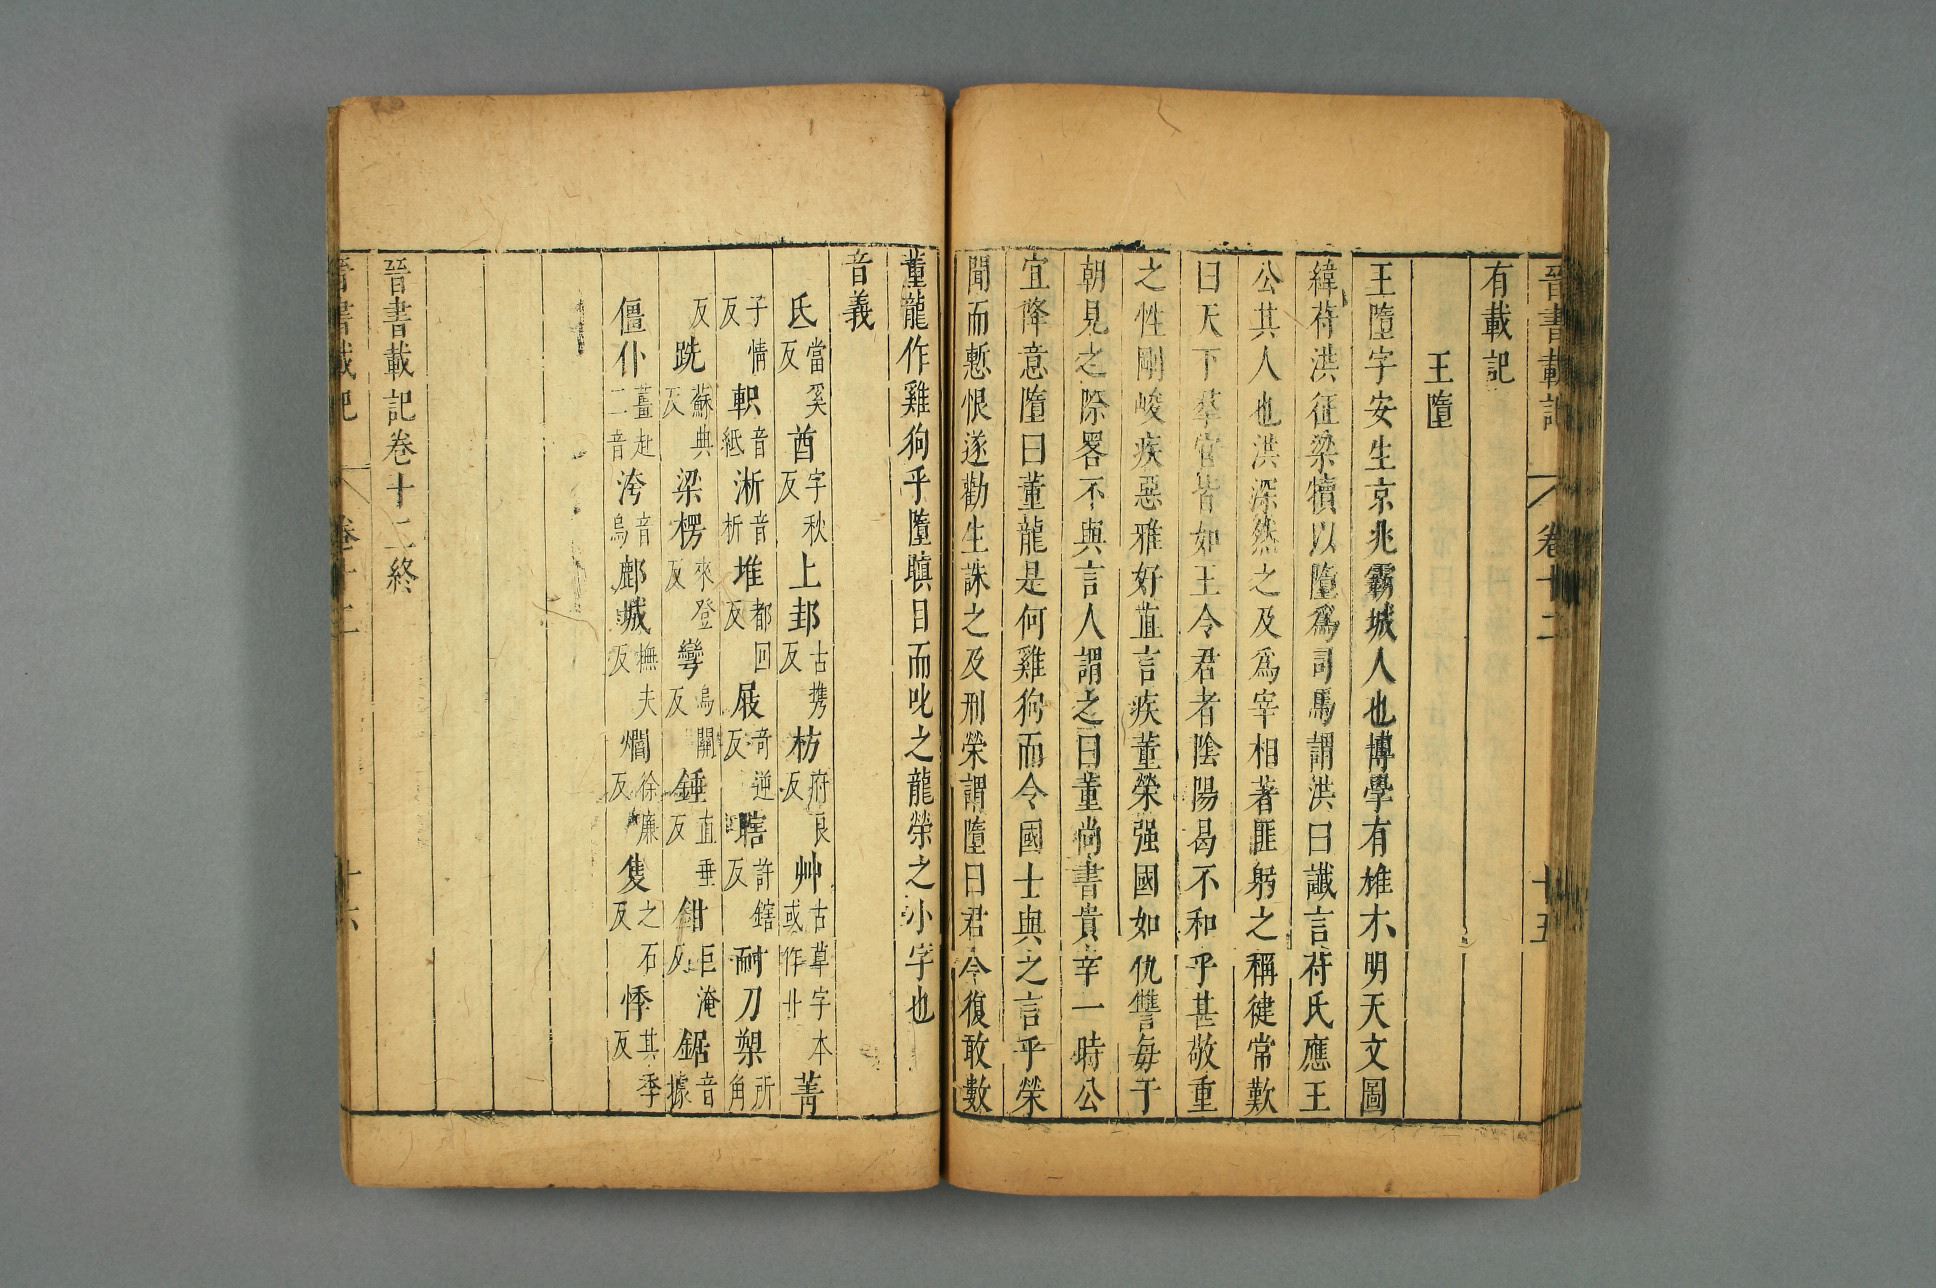 晉書載記 卷十二 十五
有載記
王墮
王墮字安生京兆霸城人也博學有雄才明天文圖
緯苻洪征梁犢以墮爲司馬謂洪曰讖言苻氏應王
公其人也洪深然之及爲宰相著匪躬之稱健常歎
曰天下羣官皆如王令君者陰陽曷不和乎甚敬重
之性剛峻疾惡雅好直言疾董榮强國如仇讐每于
朝見之際畧不與言人謂之曰董尚書貴幸一時公
宜降意墮曰董龍是何雞狗而令國士與之言乎榮
聞而慙恨遂勸生誅之及刑榮謂墮曰君今復敢數
董龍作雞狗乎墮瞋目而叱之龍榮之小字也
音義
氐當奚反 酋字秋反 上邽古携反 枋府良反 艸古草字本或作廾 菁
子情反 軹音紙 淅音析 堆都回反 屐奇逆反 瞎許鎋反 耐 刀槊所角
反 跣蘇典反 梁楞來登反 彎烏關反 錘直垂反 鉗巨淹反 鋸音據
僵仆薑赴二音 洿音烏 鄜城撫夫反 爓徐廉反 隻之石反 悸其季反
晉書載記卷十二終
晉書載記 卷十二 十六